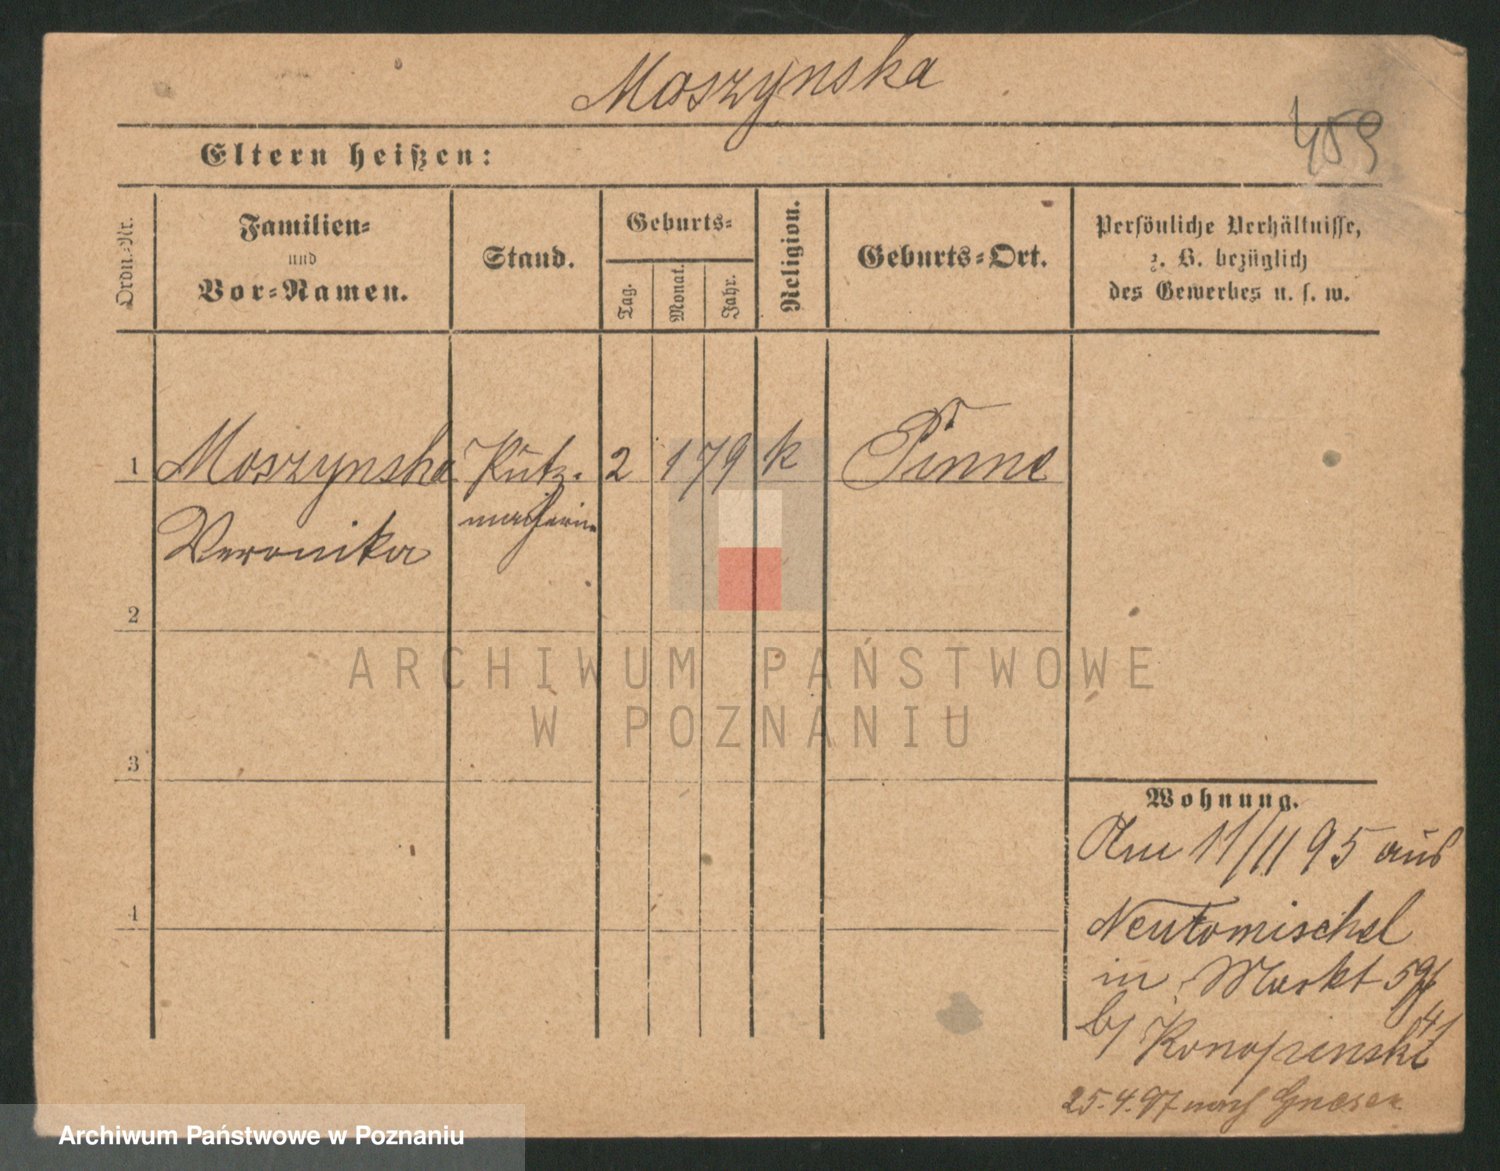 Moszynska
459
Eltern heißen:
Ordn.-Nr.
Familien-
und
Vor-Namen.
Stand.
Geburts-
Tag.
Monat.
Jahr.
Religion.
Geburts-Ort.
Persönliche Verhältnisse,
z. B. bezüglich
des Gewerbes u. s. w.
1 Moszynska Putz- 2 1 79 k Pinne
Veronika macherin
2
3
4
ARCHIWUM PAŃSTWOWE
W POZNANIU
Wohnung.
Am 11/11 95 aus
Neutomischel
in Markt 59
b/ Konopinski
25.4.97 nach Gnesen
Archiwum Państwowe w Poznaniu